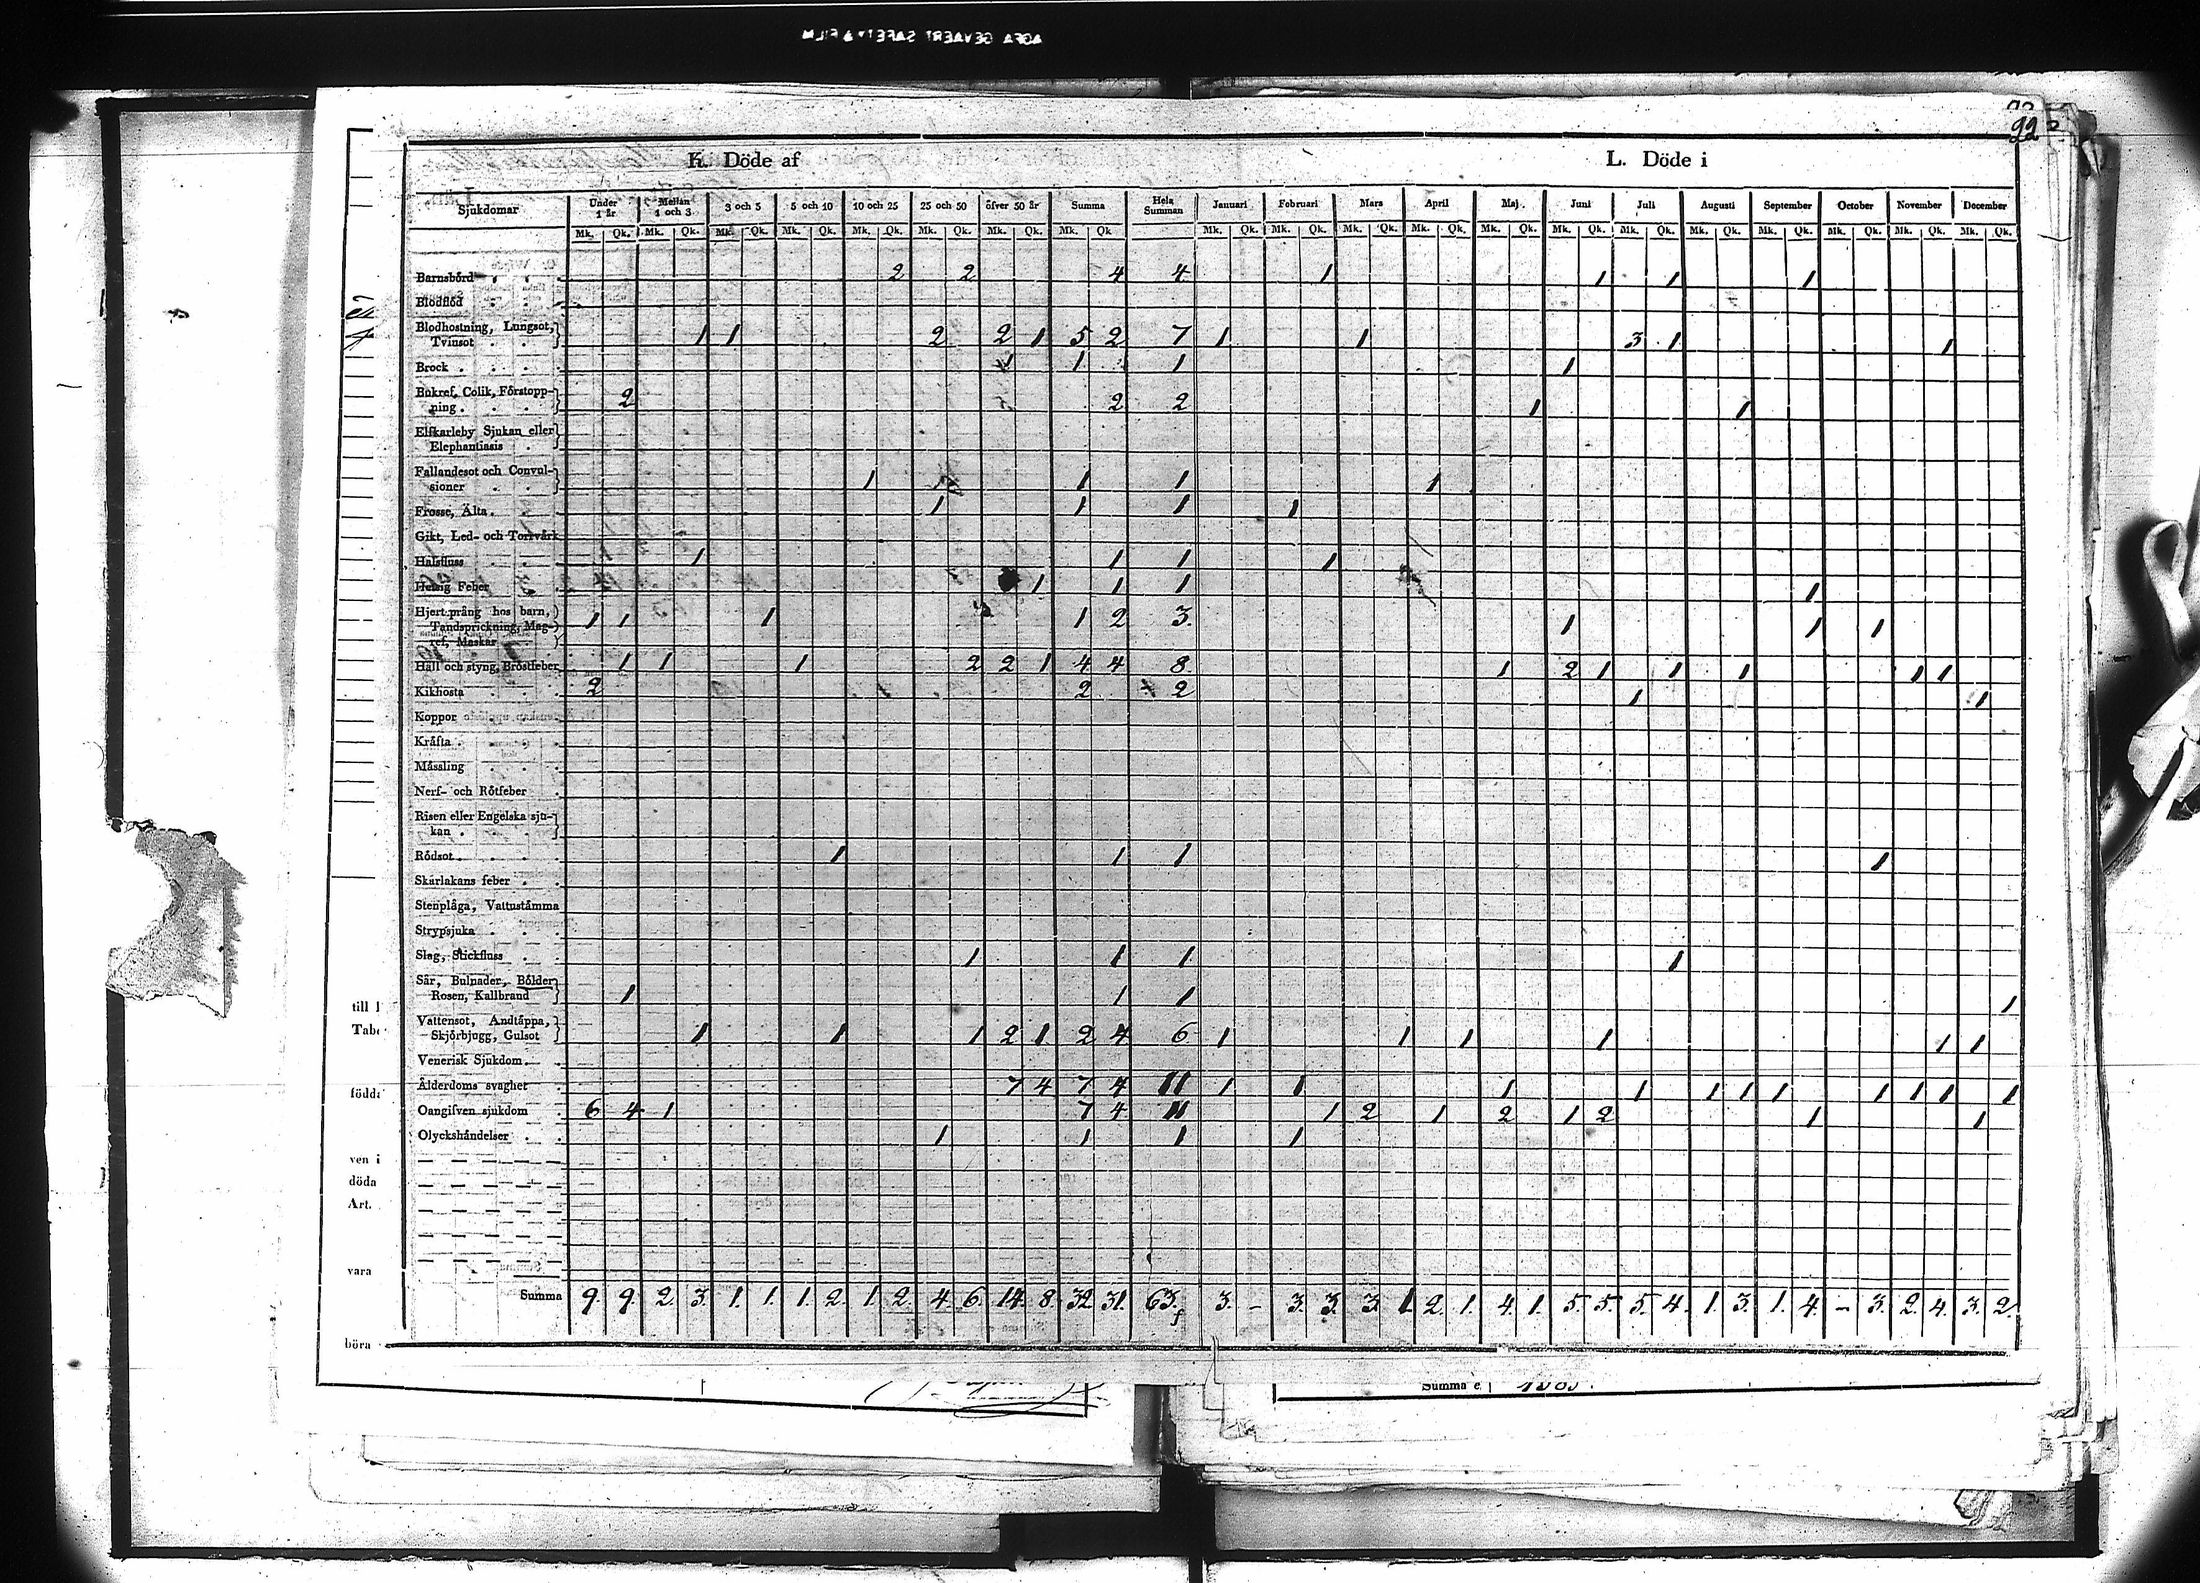 22
K. Döde af L. Döde i
Sjukdomar Under 1 år Mellan 1 och 3 3 och 5 5 och 10 10 och 25 25 och 50 öfver 50 år Summa Hela Summan Januari Februari Mars April Maj Juni Juli Augusti September October November December
Mk. Qk. Mk. Qk. Mk. Qk. Mk. Qk. Mk. Qk. Mk. Qk. Mk. Qk. Mk. Qk Mk. Qk. Mk. Qk. Mk. Qk. Mk. Qk. Mk. Qk. Mk. Qk. Mk. Qk. Mk. Qk. Mk. Qk. Mk. Qk. Mk. Qk. Mk. Qk.
Barnsbörd 2 2 4 4 1 1 1 1
Blodflöd
Blodhostning, Lungsot,
Tvinsot 1 1 2 2 1 5 2 7 1 1 3 1 1
Brock 1 1 1 1
Bukref, Colik, Förstopp-
ning 2 2 2 1 1
Elfkarleby Sjukan eller
Elephantiasis
Fallandesot och Convul-
sioner 1 1 1 1
Frosse, Älta 1 1 1 1
Gikt, Led- och Torrvärk
Halsfluss 1 1 1 1
Hetsig Feber 1 1 1 1
Hjertsprång hos barn,
Tandsprickning, Mag-
ref, Maskar 1 1 1 1 2 3 1 1 1
Håll och styng, Bröstfeber 1 1 1 2 2 1 4 4 8 1 2 1 1 1 1 1
Kikhosta 2 2 2 1 1
Koppor
Kräfta
Mässling
Nerf- och Rötfeber
Risen eller Engelska sju-
kan
Rödsot 1 1 1 1
Skarlakans feber
Stenplåga, Vattustämma
Strypsjuka
Slag, Stickfluss 1 1 1 1
Sår, Bulnader, Bölder
Rosen, Kallbrand 1 1 1 1
Vattensot, Andtäppa,
Skjörbjugg, Gulsot 1 1 1 2 1 2 4 6 1 1 1 1 1 1
Venerisk Sjukdom
Ålderdoms svaghet 7 4 7 4 11 1 1 1 1 1 1 1 1 1 1 1
Oangifven sjukdom 6 4 1 7 4 11 1 2 1 2 1 2 1 1
Olyckshändelser 1 1 1 1
Summa 9. 9. 2. 3. 1. 1. 1. 2. 1. 2. 4. 6. 14. 8. 32 31. 63. 3. – 3. 3. 3. 1. 2. 1. 4. 1. 5. 5. 5. 4. 1. 3. 1. 4. – 3. 2. 4. 3. 2.
till
Tabe
födda
ven i
döda
Art.
vara
böra
Summa